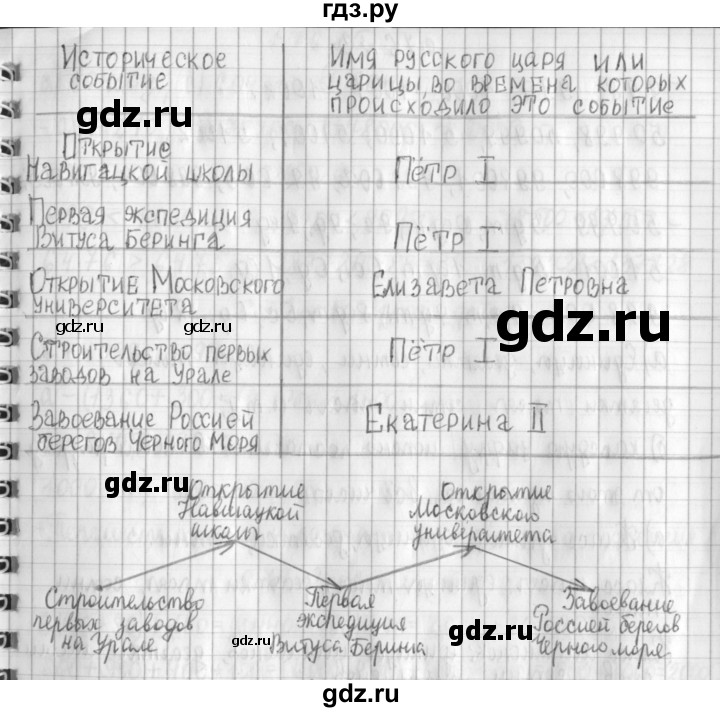 гдз.ру
Историческое событие
Имя русского царя или
царицы, во времена которых
происходило это событие
gdz.ru
Открытие
Навигацкой школы
Пётр I
Первая экспедиция
Витуса Беринга
Пётр I
Открытие Московского
университета
Елизавета Петровна
gdz.ru
gdz.ru
gdz.ru
Строительство первых
заводов на Урале
Пётр I
Завоевание Россией
берегов Черного моря
Екатерина II
gdz.ru
Открытие
Навигацкой
школы
Открытие
Московского
университета
Строительство
первых заводов
на Урале
Первая
экспедиция
Витуса Беринга
Завоевание
Россией берегов
Черного моря
gdz.ru
gdz.ru
gdz.ru